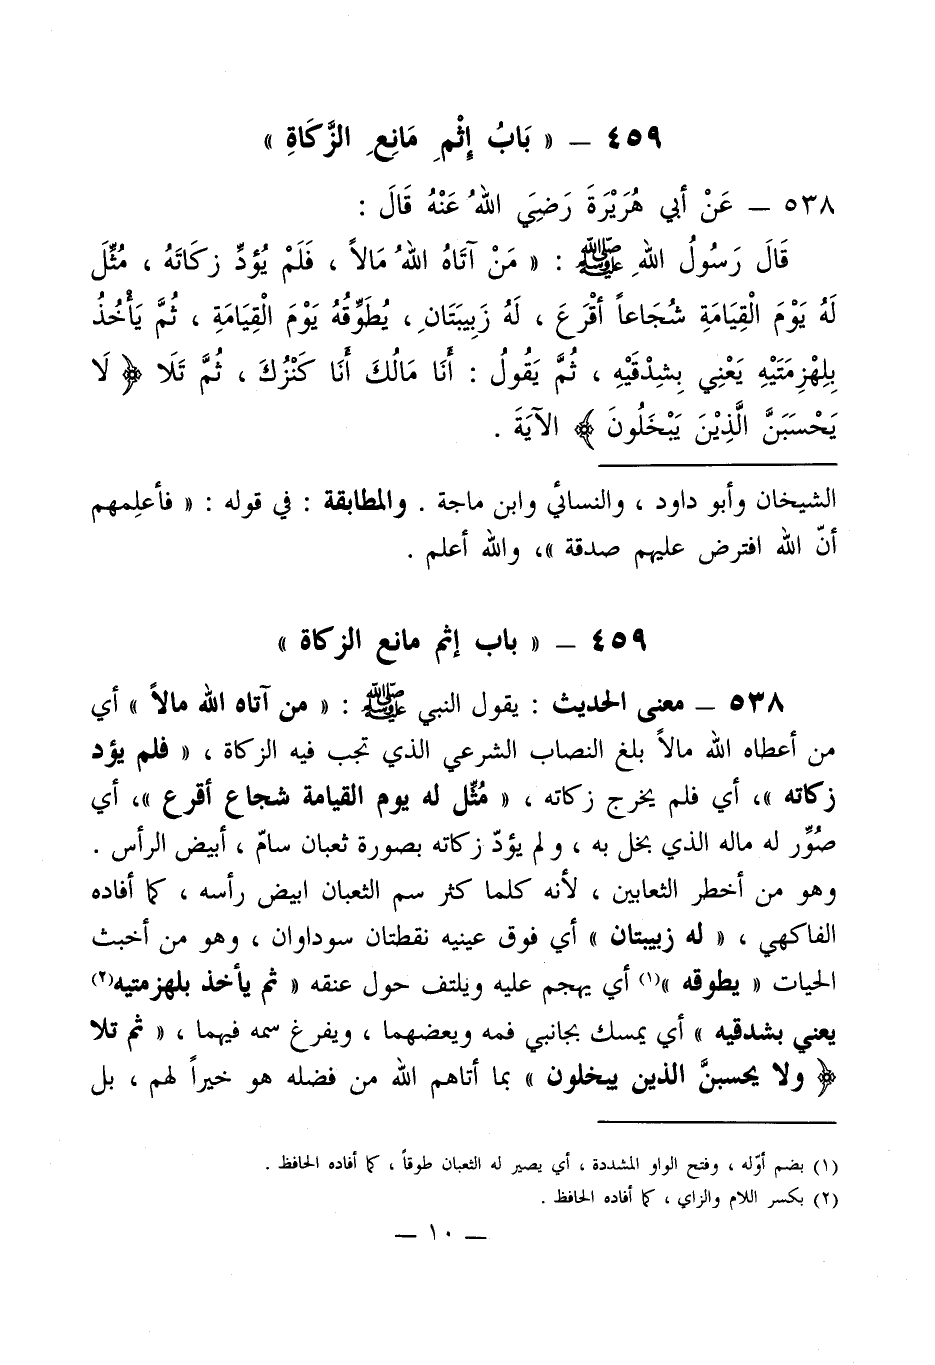 ٤٥٩ – « بَابُ إِثْمِ مَانِعِ الزَّكَاةِ »
٥٣٨ – عَنْ أبي هُرَيْرَةَ رَضِيَ اللهُ عَنْهُ قَالَ :
قَالَ رَسُولُ اللهِ ﷺ : « مَنْ آتَاهُ اللهُ مَالاً ، فَلَمْ يُؤَدِّ زكَاتَهُ ، مُثِّلَ
لَهُ يَوْمَ الْقِيَامَةِ شُجَاعاً أقْرَعَ ، لَهُ زَبِيبَتَانِ ، يُطَوَّقُهُ يَوْمَ الْقِيَامَةِ ، ثُمَّ يَأْخُذُ
بِلِهْزِمَتَيْهِ يَعْنِي بِشِدْقَيْهِ ، ثُمَّ يَقُولُ : أَنَا مَالُكَ أَنَا كَنْزُكَ ، ثُمَّ تَلَا ﴿ لَا
يَحْسَبَنَّ الَّذِيْنَ يَبْخَلُونَ ﴾ الآيَةَ .
الشيخان وأبو داود ، والنسائي وابن ماجة . والمطابقة : في قوله : « فأعلِمهم
أنّ الله افترض عليهم صدقة »، والله أعلم .
٤٥٩ – « باب إثم مانع الزكاة »
٥٣٨ – معنى الحديث : يقول النبي ﷺ : « من آتاه الله مالاً » أي
من أعطاه الله مالاً بلغ النصاب الشرعي الذي تجب فيه الزكاة ، « فلم يؤد
زكاته »، أي فلم يخرج زكاته ، « مُثِّل له يوم القيامة شجاع أقرع »، أي
صُوِّر له ماله الذي بخل به ، ولم يؤدّ زكاته بصورة ثعبان سامّ ، أبيض الرأس .
وهو من أخطر الثعابين ، لأنه كلما كثر سم الثعبان ابيض رأسه ، كما أفاده
الفاكهي ، « له زبيبتان » أي فوق عينيه نقطتان سوداوان ، وهو من أخبث
الحيات « يطوقه »(١) أي يهجم عليه ويلتف حول عنقه « ثم يأخذ بلهزمتيه(٢)
يعني بشدقيه » أي يمسك بجانبي فمه ويعضهما ، ويفرغ سمه فيهما ، « ثم تلا
﴿ ولا يحسبنَّ الذين يبخلون » بما أتاهم الله من فضله هو خيراً لهم ، بل
(١) بضم أوّله ، وفتح الواو المشددة ، أي يصير له الثعبان طوقاً ، كما أفاده الحافظ .
(٢) بكسر اللام والزاي ، كما أفاده الحافظ .
– ١٠ –